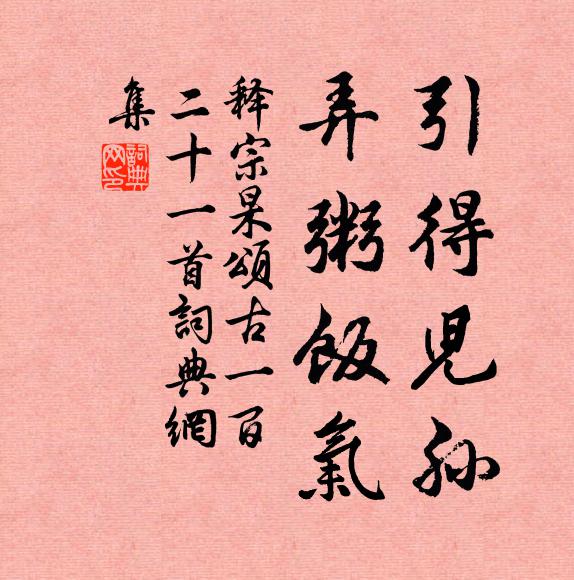 引得兒孙
弄粥飯氣
释宗杲頌古一百
二十一首詞典網
集
詞典
网印